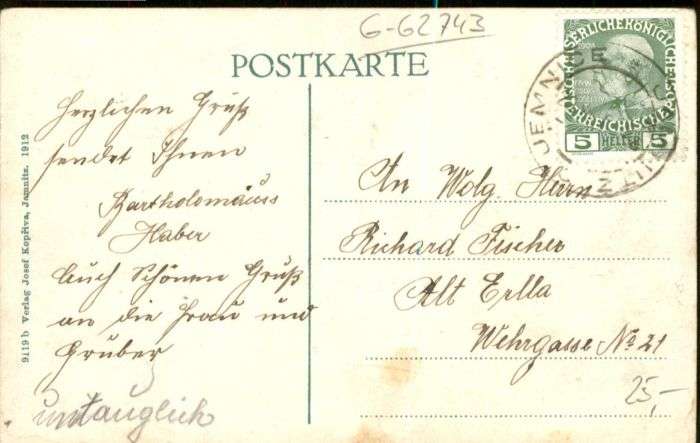 G-62743
POSTKARTE
KAISERLICHE KÖNIGLICHE
ÖSTERREICHISCHE
5 HELLER 5
JEMNICE
Herzlichen Gruß
sendet Ihnen
Bartholomäuss
Haber
Auch Schönen Gruß
an die Frau und
Gruber
untauglich
9119b Verlag Josef Kopřiva, Jamnitz. 1912
An Wolg. Herrn
Richard Fischer
Alt Erlla
Wehrgasse No 21
25,-